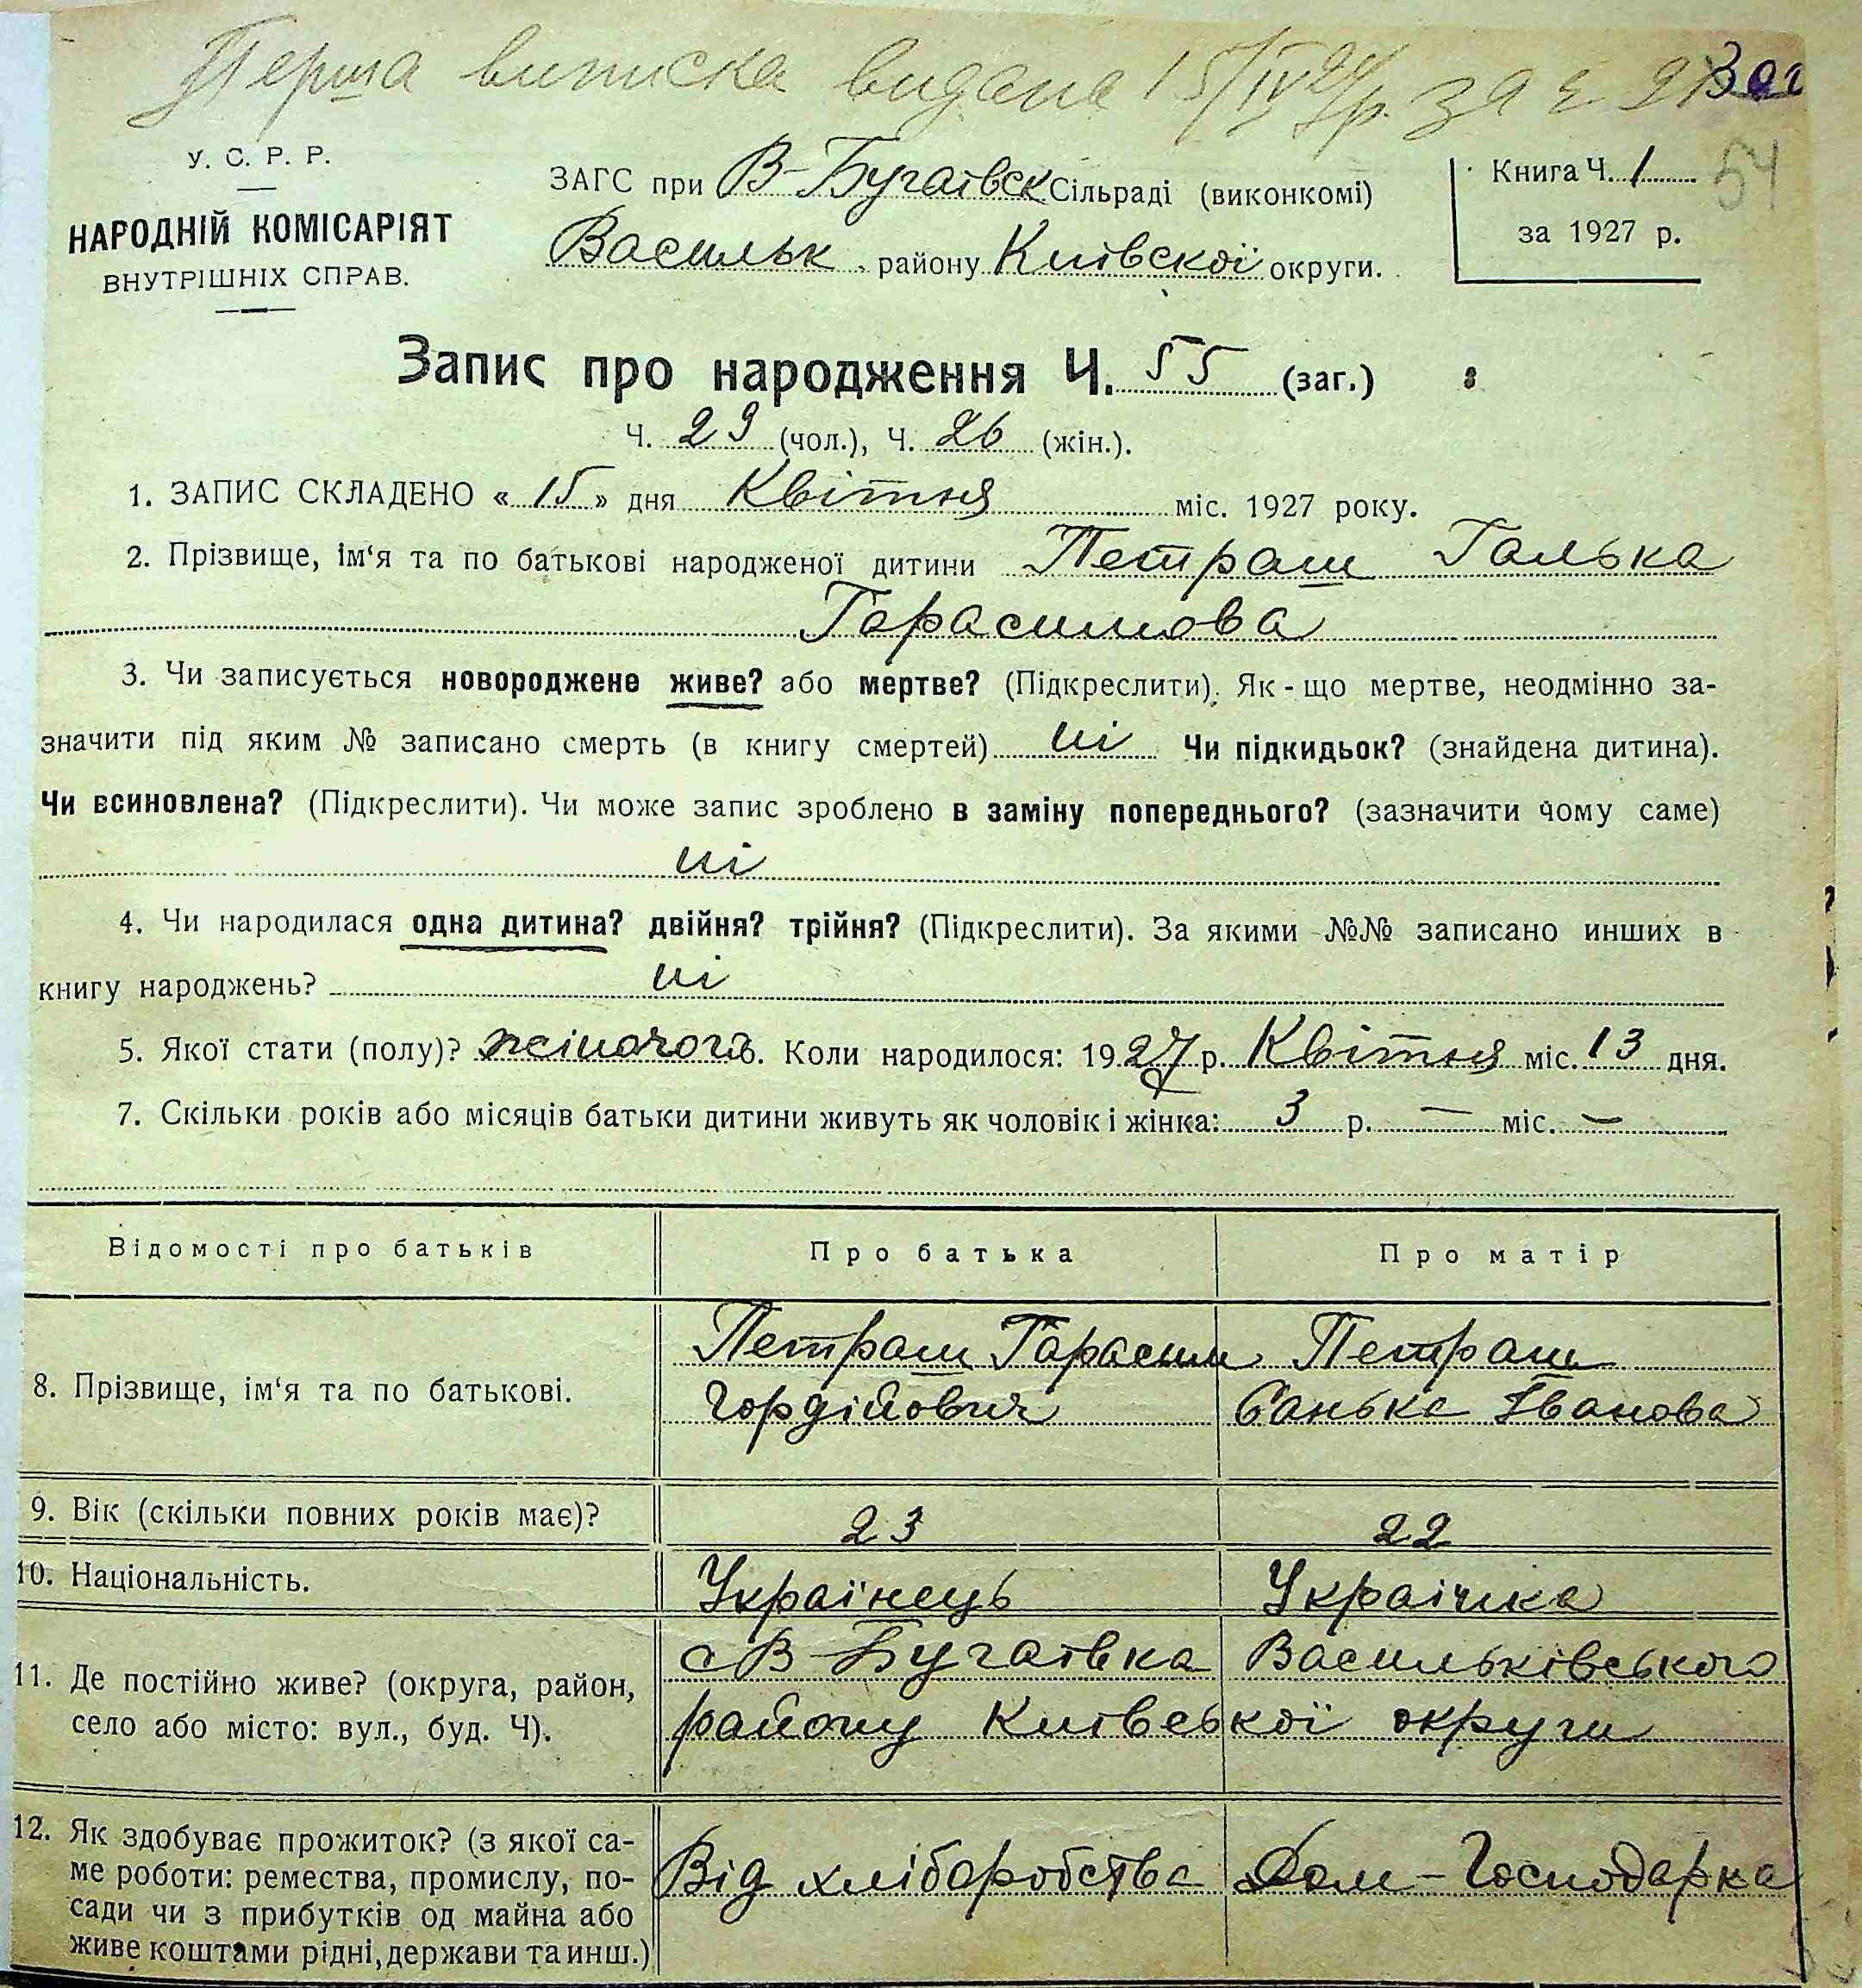 Перша виписка видана 15/IV 27р. за №
54
У. С. Р. Р.
НАРОДНІЙ КОМІСАРІЯТ
ВНУТРІШНІХ СПРАВ.
ЗАГС при В-Бугаївськ Сільраді (виконкомі)
Васильк. району Київскої округи.
Книга Ч. 1
за 1927 р.
Запис про народження Ч. 55 (заг.)
Ч. 29 (чол.), Ч. 26 (жін.).
1. ЗАПИС СКЛАДЕНО « 15 » дня Квітня міс. 1927 року.
2. Прізвище, ім‘я та по батькові народженої дитини Петраш Галька
Гарасимова
3. Чи записується новороджене живе? або мертве? (Підкреслити). Як-що мертве, неодмінно за-
значити під яким № записано смерть (в книгу смертей) ні Чи підкидьок? (знайдена дитина).
Чи всиновлена? (Підкреслити). Чи може запис зроблено в заміну попереднього? (зазначити чому саме)
ні
4. Чи народилася одна дитина? двійня? трійня? (Підкреслити). За якими №№ записано инших в
книгу народжень? ні
5. Якої стати (полу)? жіночого. Коли народилося: 1927 р. Квітня міс. 13 дня.
7. Скільки років або місяців батьки дитини живуть як чоловік і жінка: 3 р. — міс. —
Відомості про батьків Про батька Про матір
8. Прізвище, ім‘я та по батькові.
Петраш Гарасим
Гордійович
Петраш
Санька Іванова
9. Вік (скільки повних років має)? 23 22
10. Національність. Украінець Украінка
11. Де постійно живе? (округа, район,
село або місто: вул., буд. Ч).
с В-Бугаївка Васильківського
району Київської округи
12. Як здобуває прожиток? (з якої са-
ме роботи: ремества, промислу, по-
сади чи з прибутків од майна або
живе коштами рідні, держави та инш.)
Від хліборобства Дом-Господарка